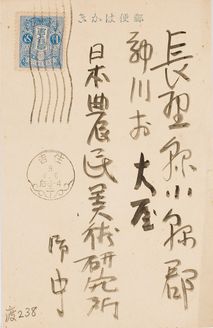 郵便はかき
長野県小県郡
神川村大屋
日本農民美術研究所
御中
渡238